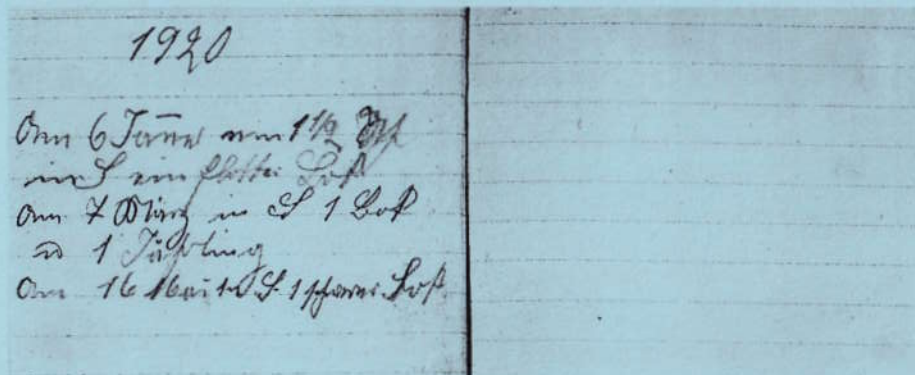 1920
Am 6 Jänner um 1 1/2 Uhr
in S ein Bock
Am 7 März in S 1 Bock
u 1 Jährling
Am 16 Mai in S. 1 schwarzer Bock